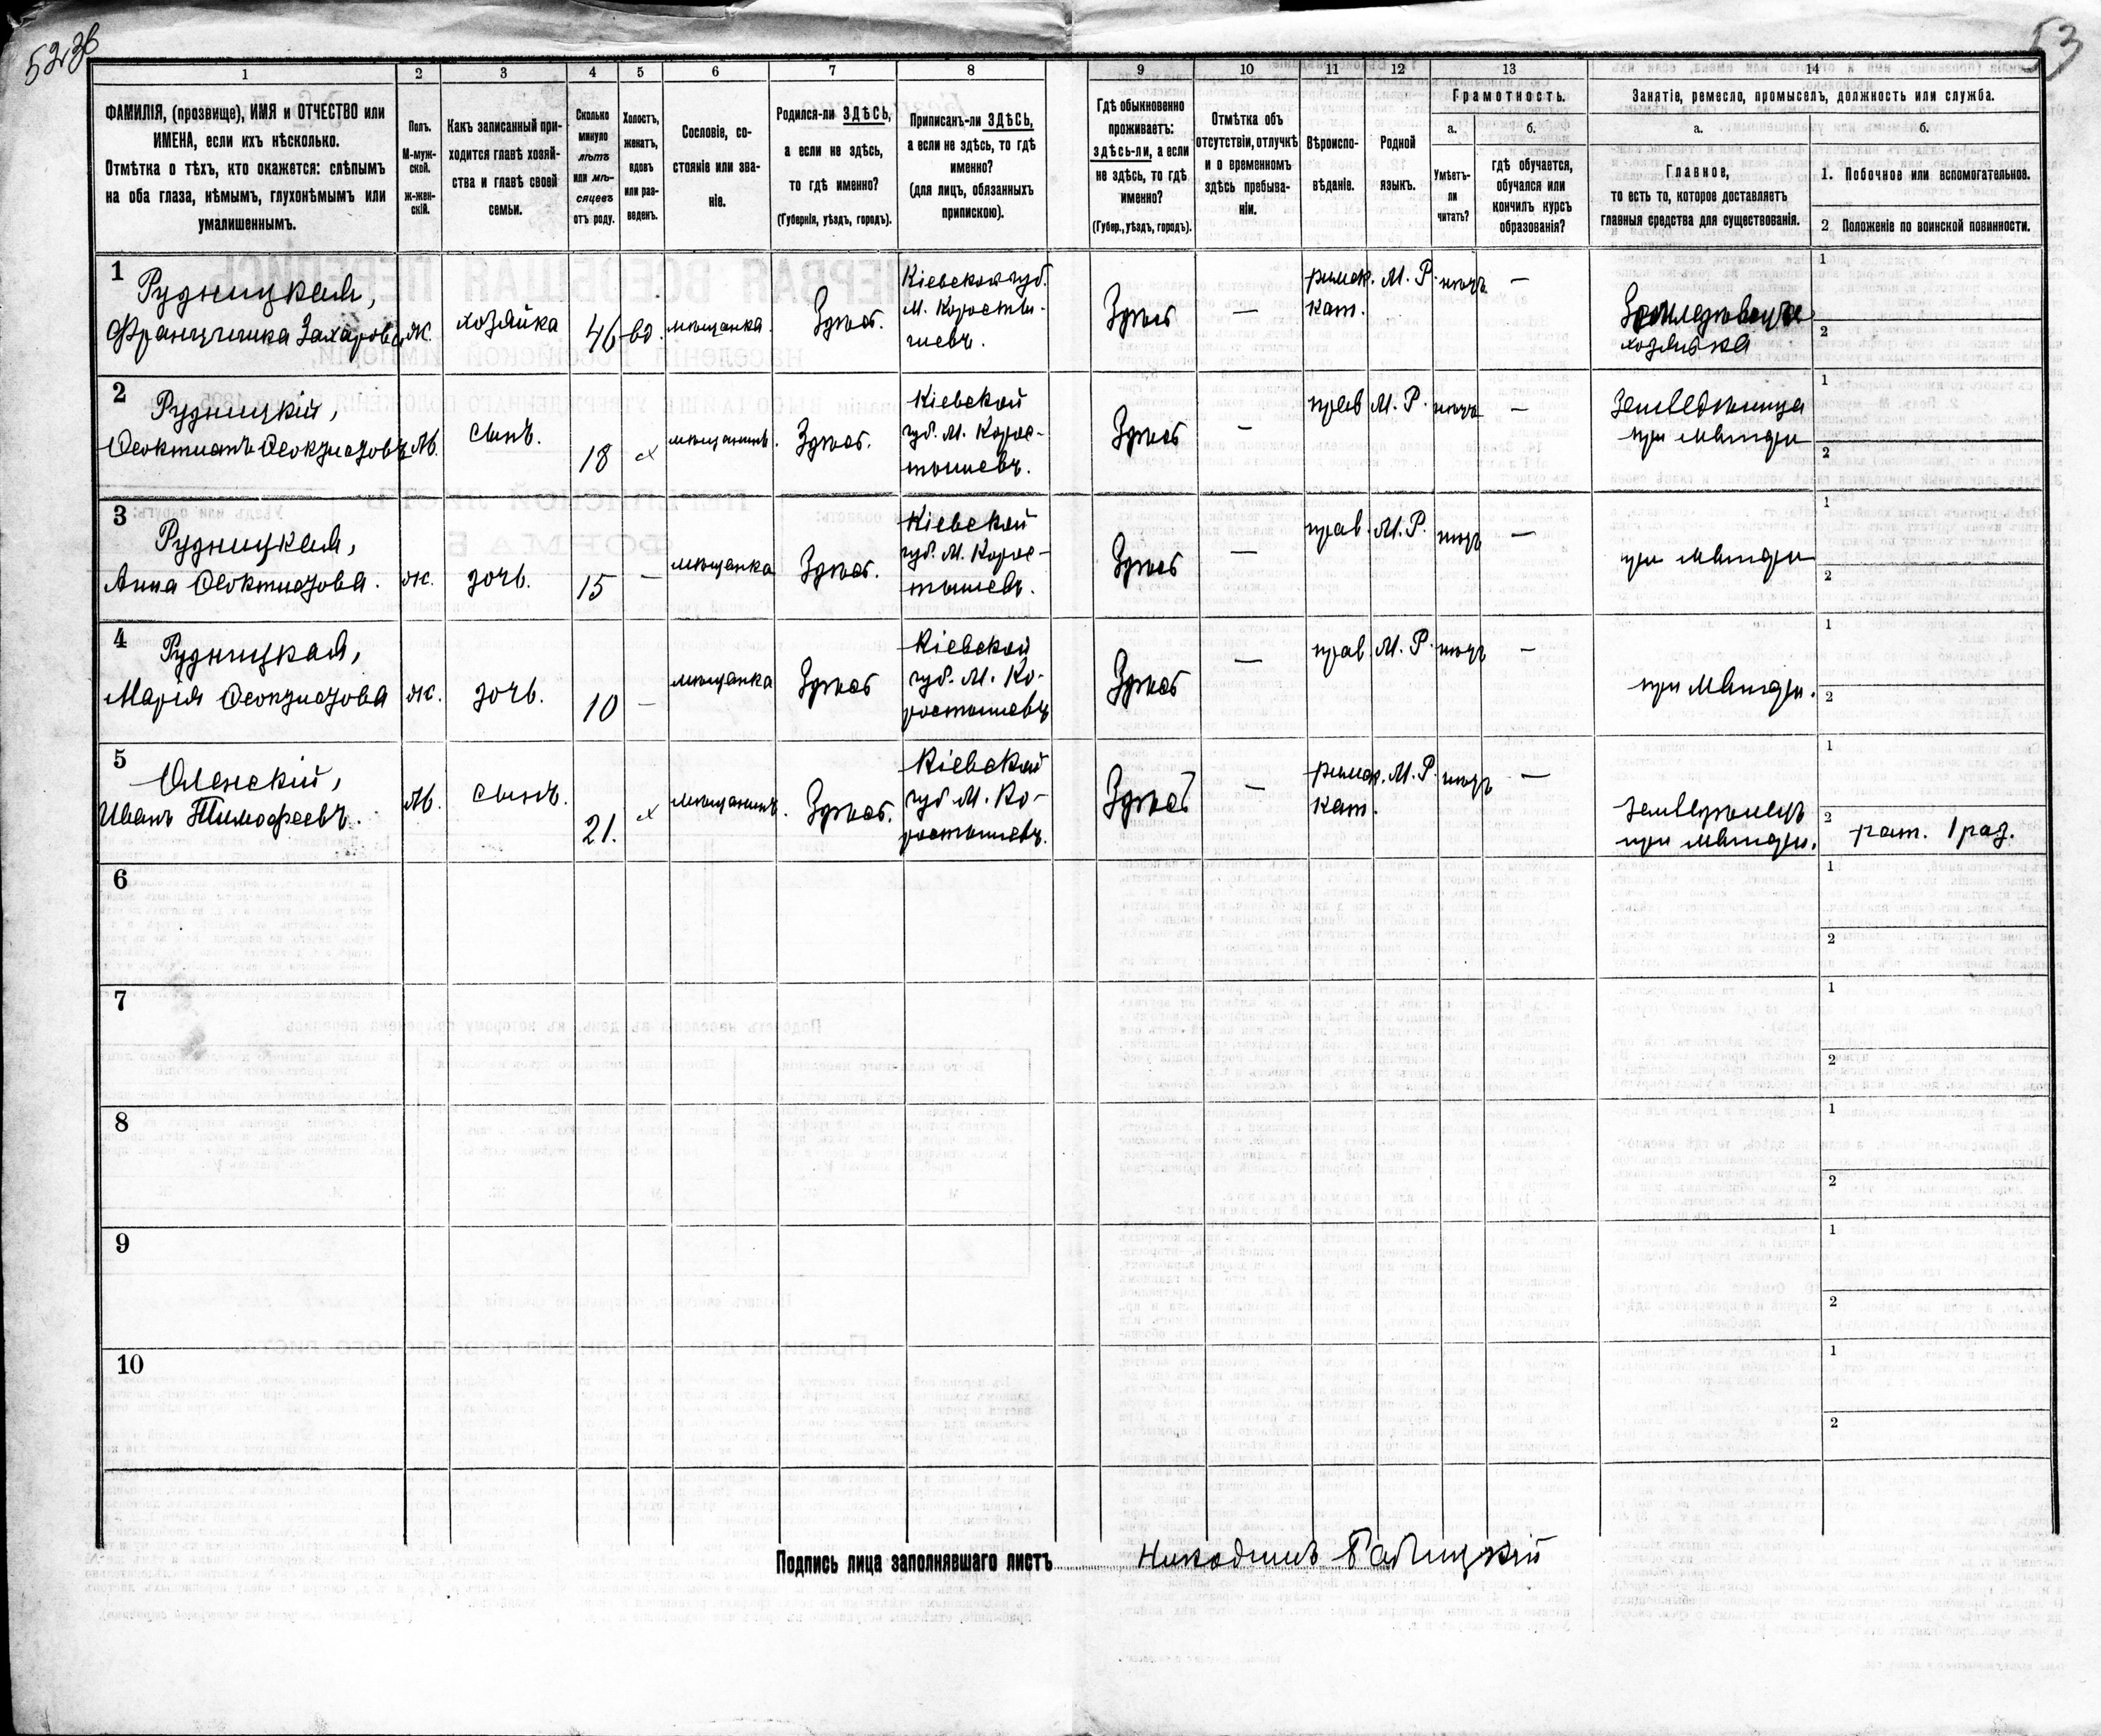 52 зв
53
1 2 3 4 5 6 7 8 9 10 11 12 13 14
ФАМИЛІЯ, (прозвище), ИМЯ и ОТЧЕСТВО или
ИМЕНА, если ихъ нѣсколько.
Отмѣтка о тѣхъ, кто окажется: слѣпымъ
на оба глаза, нѣмымъ, глухонѣмымъ или
умалишеннымъ.
Полъ.
М-муж-
ской.
ж-жен-
скій.
Какъ записанный при-
ходится главѣ хозяй-
ства и главѣ своей
семьи.
Сколько
минуло
лѣтъ
или мѣ-
сяцевъ
отъ роду.
Холостъ,
женатъ,
вдовъ
или раз-
веденъ.
Сословіе, со-
стояніе или зва-
ніе.
Родился-ли ЗДѢСЬ,
а если не здѣсь,
то гдѣ именно?
(Губернія, уѣздъ, городъ).
Приписанъ-ли ЗДѢСЬ,
а если не здѣсь, то гдѣ
именно?
(для лицъ, обязанныхъ
припискою).
Гдѣ обыкновенно
проживаетъ:
здѣсь-ли, а если
не здѣсь, то гдѣ
именно?
(Губер., уѣздъ, городъ).
Отмѣтка объ
отсутствіи, отлучкѣ
и о временномъ
здѣсь пребыва-
ніи.
Вѣроиспо-
вѣданіе.
Родной
языкъ.
Грамотность.
а.
Умѣетъ-
ли
читать?
б.
гдѣ обучается,
обучался или
кончилъ курсъ
образованія?
Занятіе, ремесло, промыселъ, должность или служба.
а.
Главное,
то есть то, которое доставляетъ
главныя средства для существованія.
б.
1. Побочное или вспомогательное.
2 Положеніе по воинской повинности.
1
Рудницкая,
Францишка Захарова
ж.
хозяйка
46
вд.
мѣщанка.
Здѣсь.
Кіевской губ.
М. Коросты-
шевъ.
Здѣсь
—
римск.
кат.
М. Р.
—
хозяйка
1
2
2
Рудницкій,
М.
сынъ.
18
х
мѣщанинъ.
Здѣсь.
Кіевской
губ. М. Корос-
тышевъ.
Здѣсь
—
прав
М. Р.
—
при матери
1
2
3
Рудницкая,
Анна Феоктистова.
ж.
дочь.
15
—
мѣщанка
Здѣсь.
Кіевской
губ. М. Корос-
тышевъ.
Здѣсь
—
прав.
М. Р.
—
при матери
1
2
4
Рудницкая,
Марія Феоктистова
ж.
дочь.
10
—
мѣщанка
Здѣсь
Кіевской
губ. М. Ко-
ростышевъ
Здѣсь
—
прав.
М. Р.
—
при матери.
1
2
5
Оленскій,
Иванъ Тимофеевъ.
М.
сынъ.
21.
х
мѣщанинъ.
Здѣсь.
Кіевской
губ М. Ко-
ростышевъ.
Здѣсь
—
римск.
кат.
М. Р.
—
при матери.
1
2
рат. 1 раз.
6
1
2
7
1
2
8
1
2
9
1
2
10
1
2
Подпись лица заполнявшаго листъ
Никодимъ